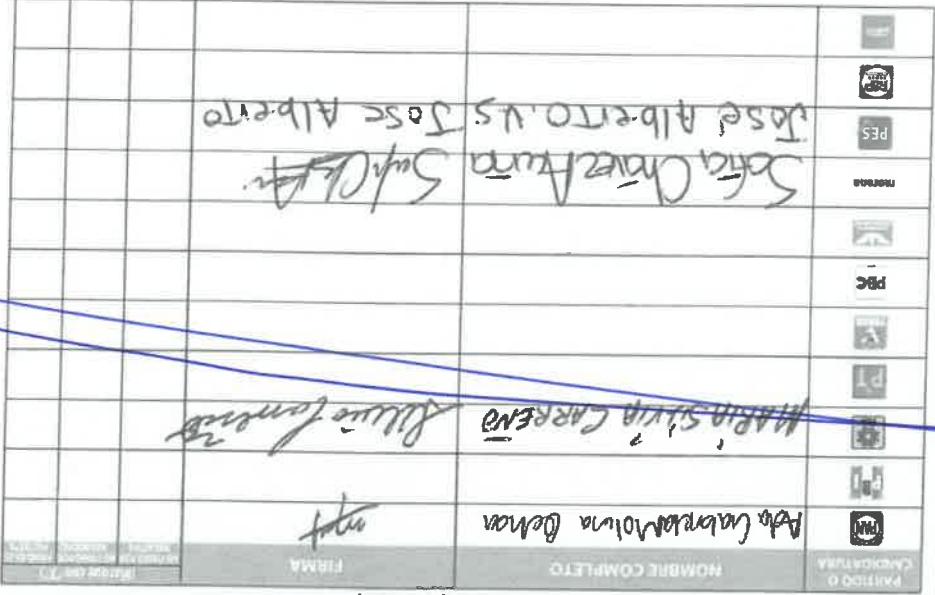 PARTIDO O CANDIDATURA NOMBRE COMPLETO FIRMA
PAN Ada Gabriela Molina
PRI
MARIA SILVIA CARREÑO Silvia Carreño
PT
PBC
morena Sofia Chávez Acuña
PES José AlbeRTO. V.S José AlbeRTO
RSP